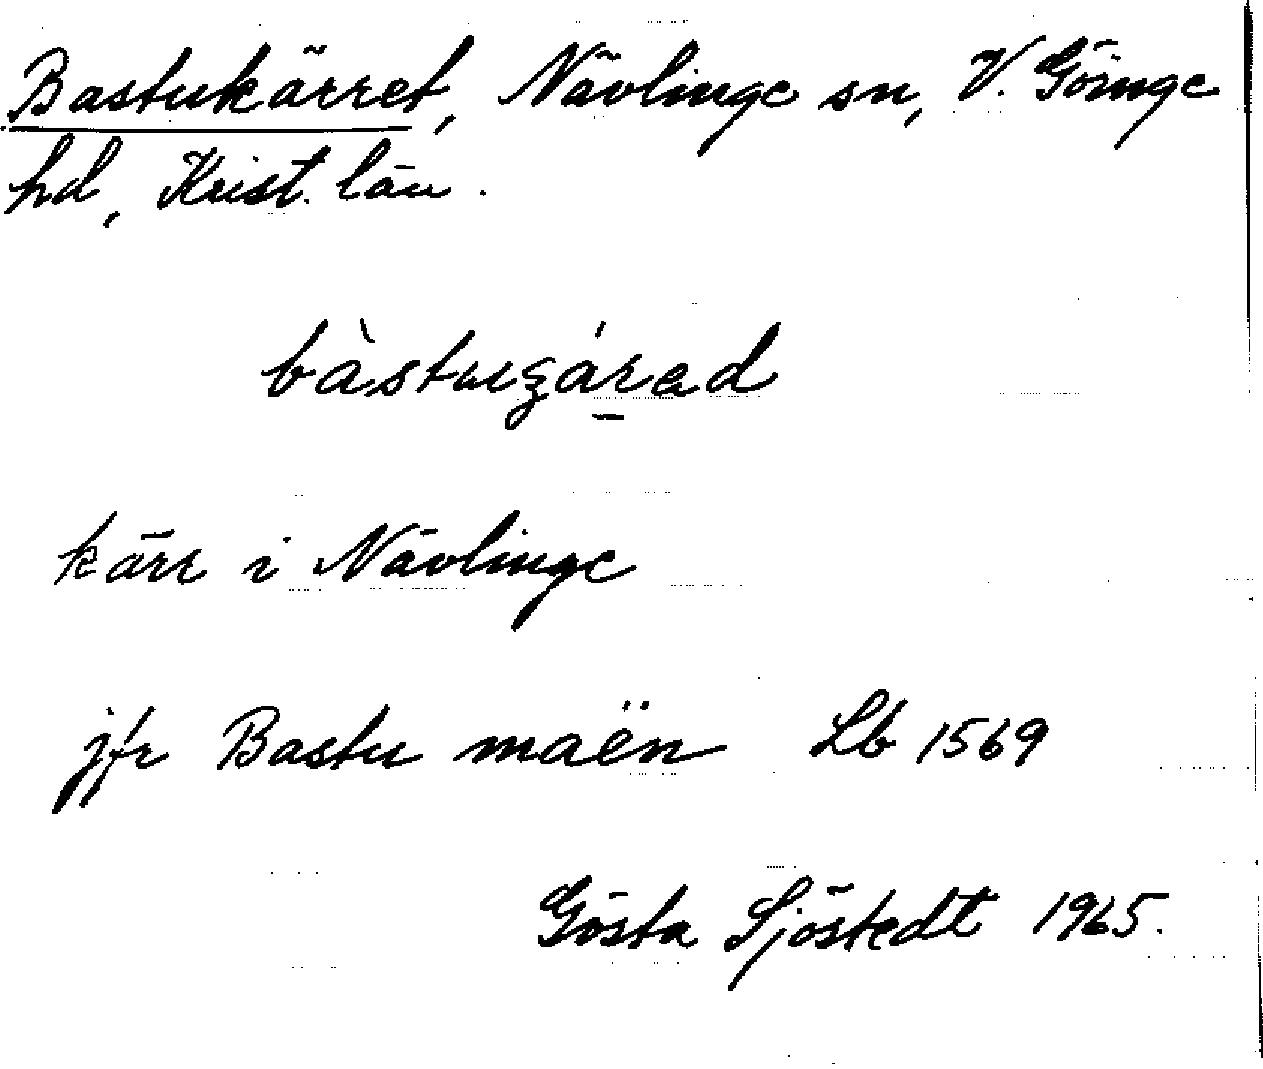 Bastukärret, Nävlinge sn, V. Göinge
hd, Krist. län.
kärr i Nävlinge
jfr Bastu maën Lb 1569
Gösta Sjöstedt 1965.